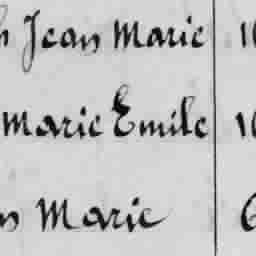 Jean Marie
Marie Emile
Marie